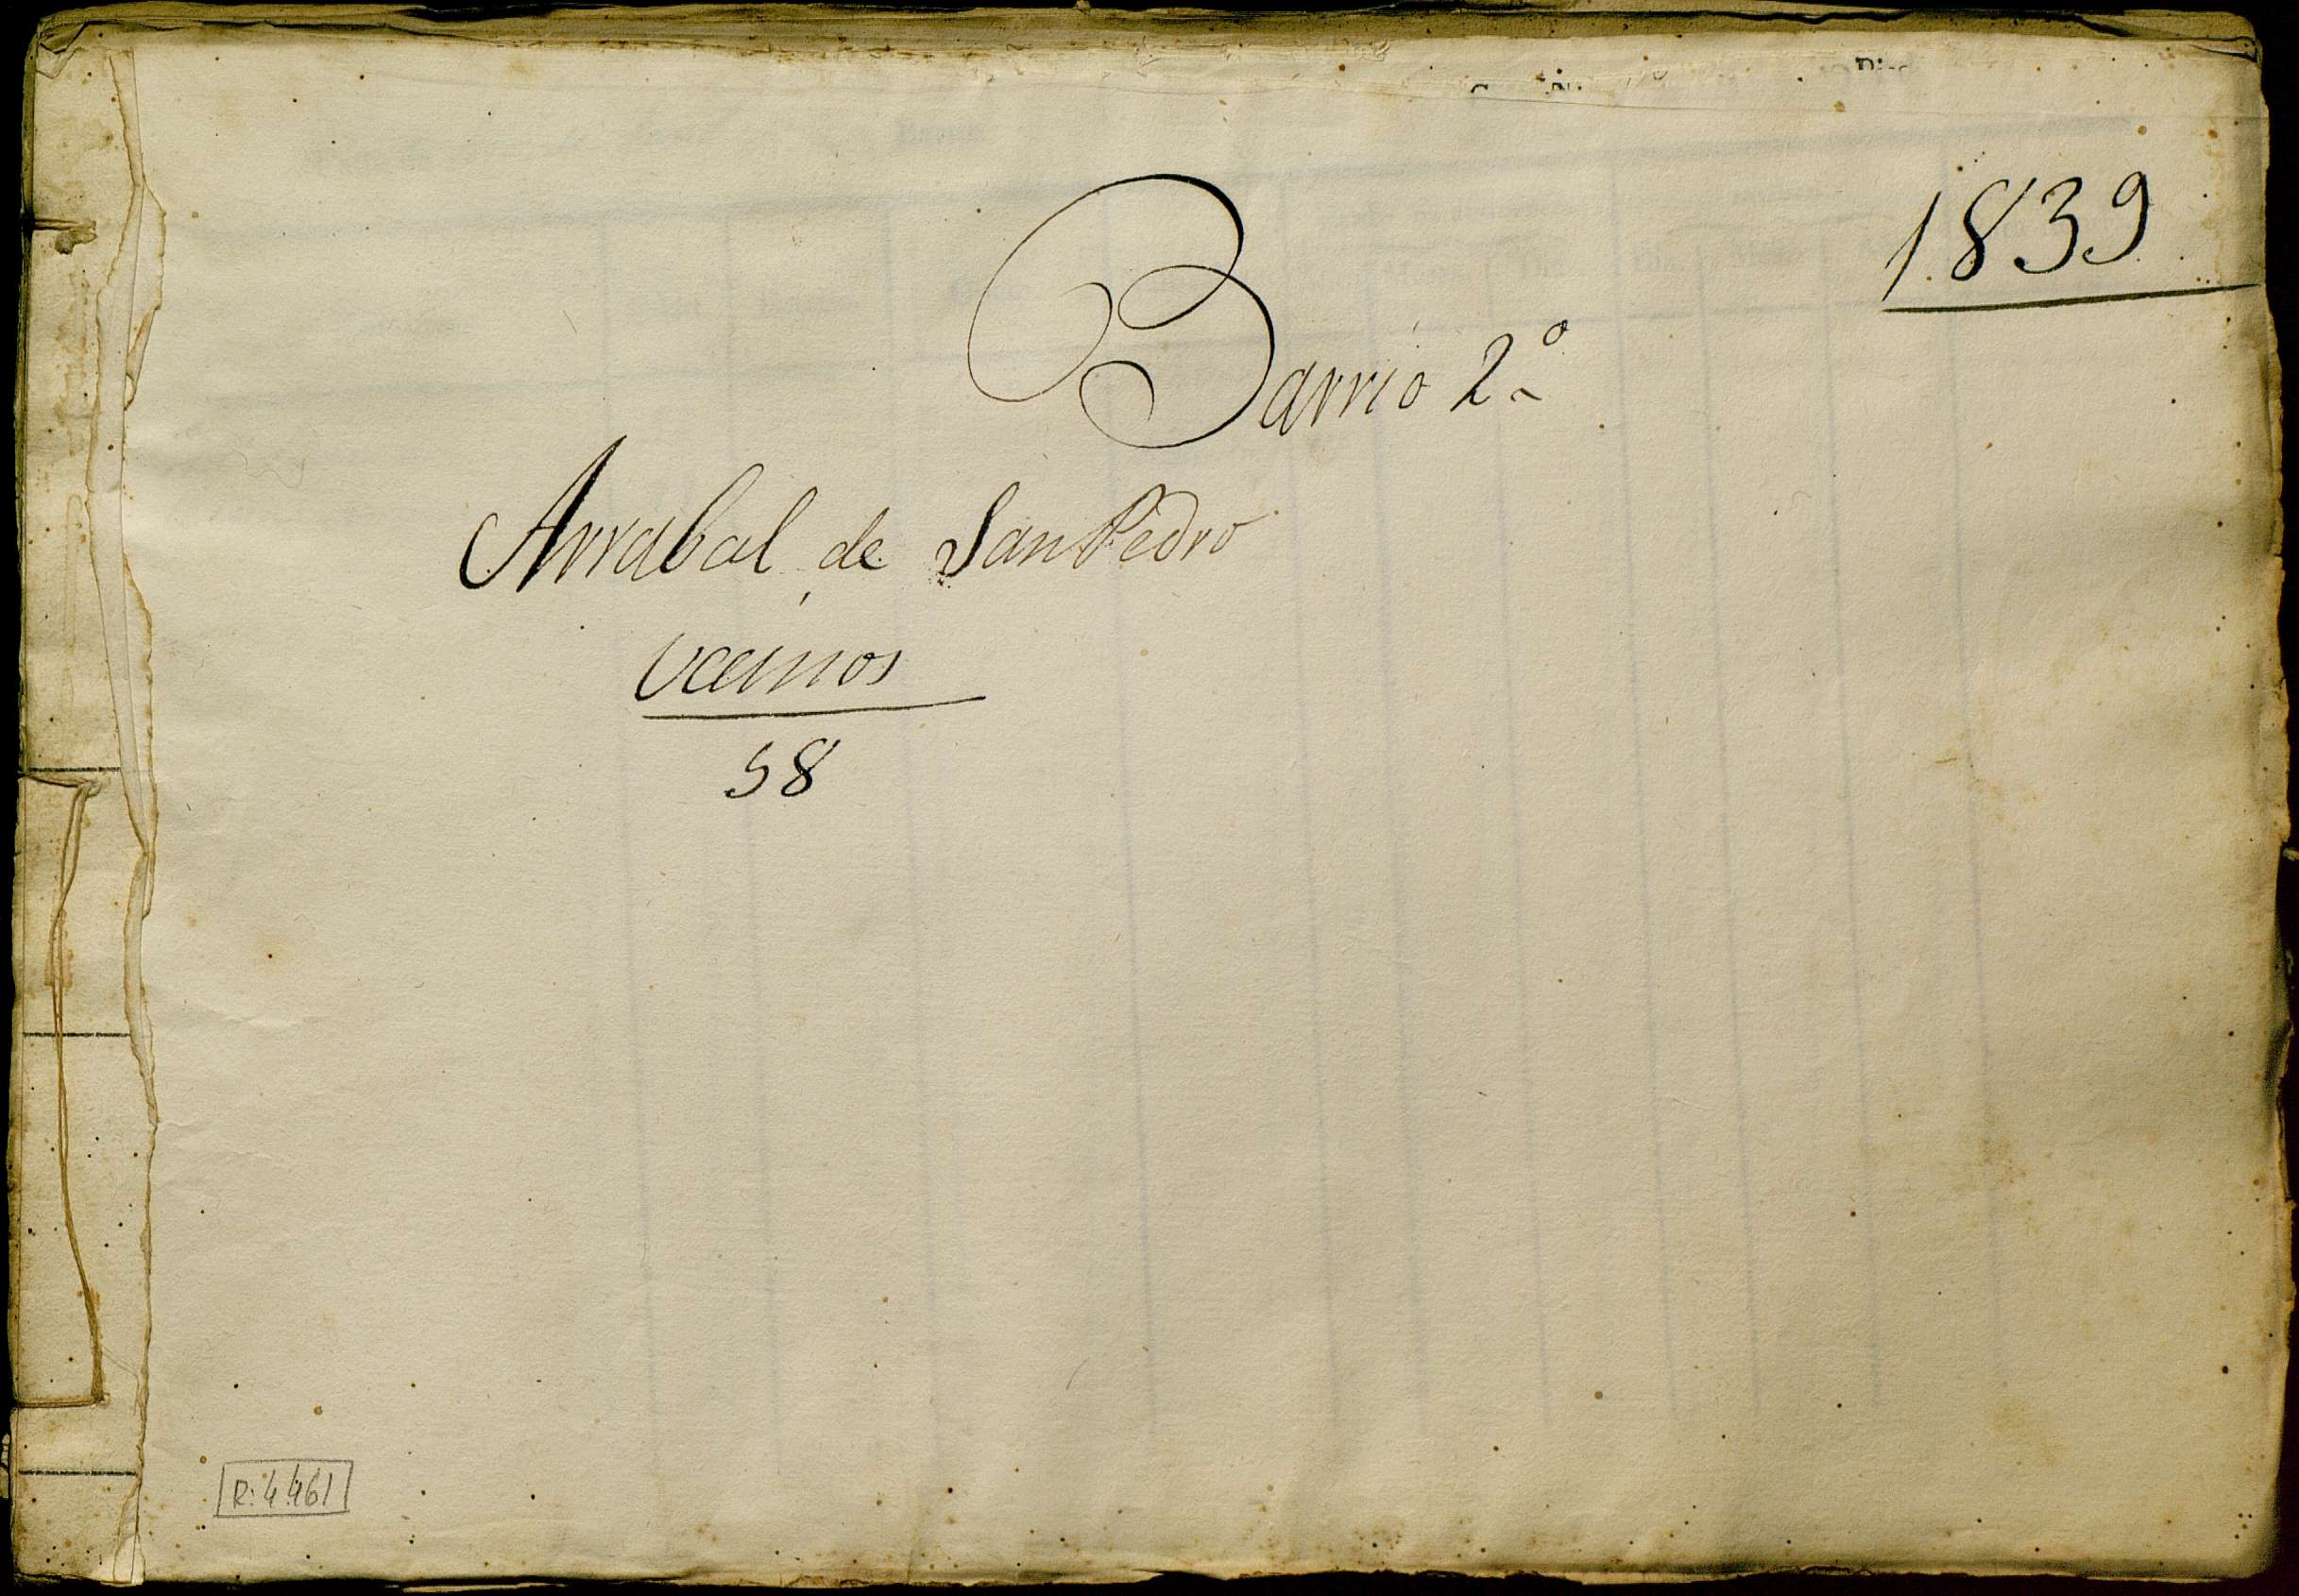 1839
Barrio 2º
Arrabal de San Pedro
Vecinos
58
R: 4461